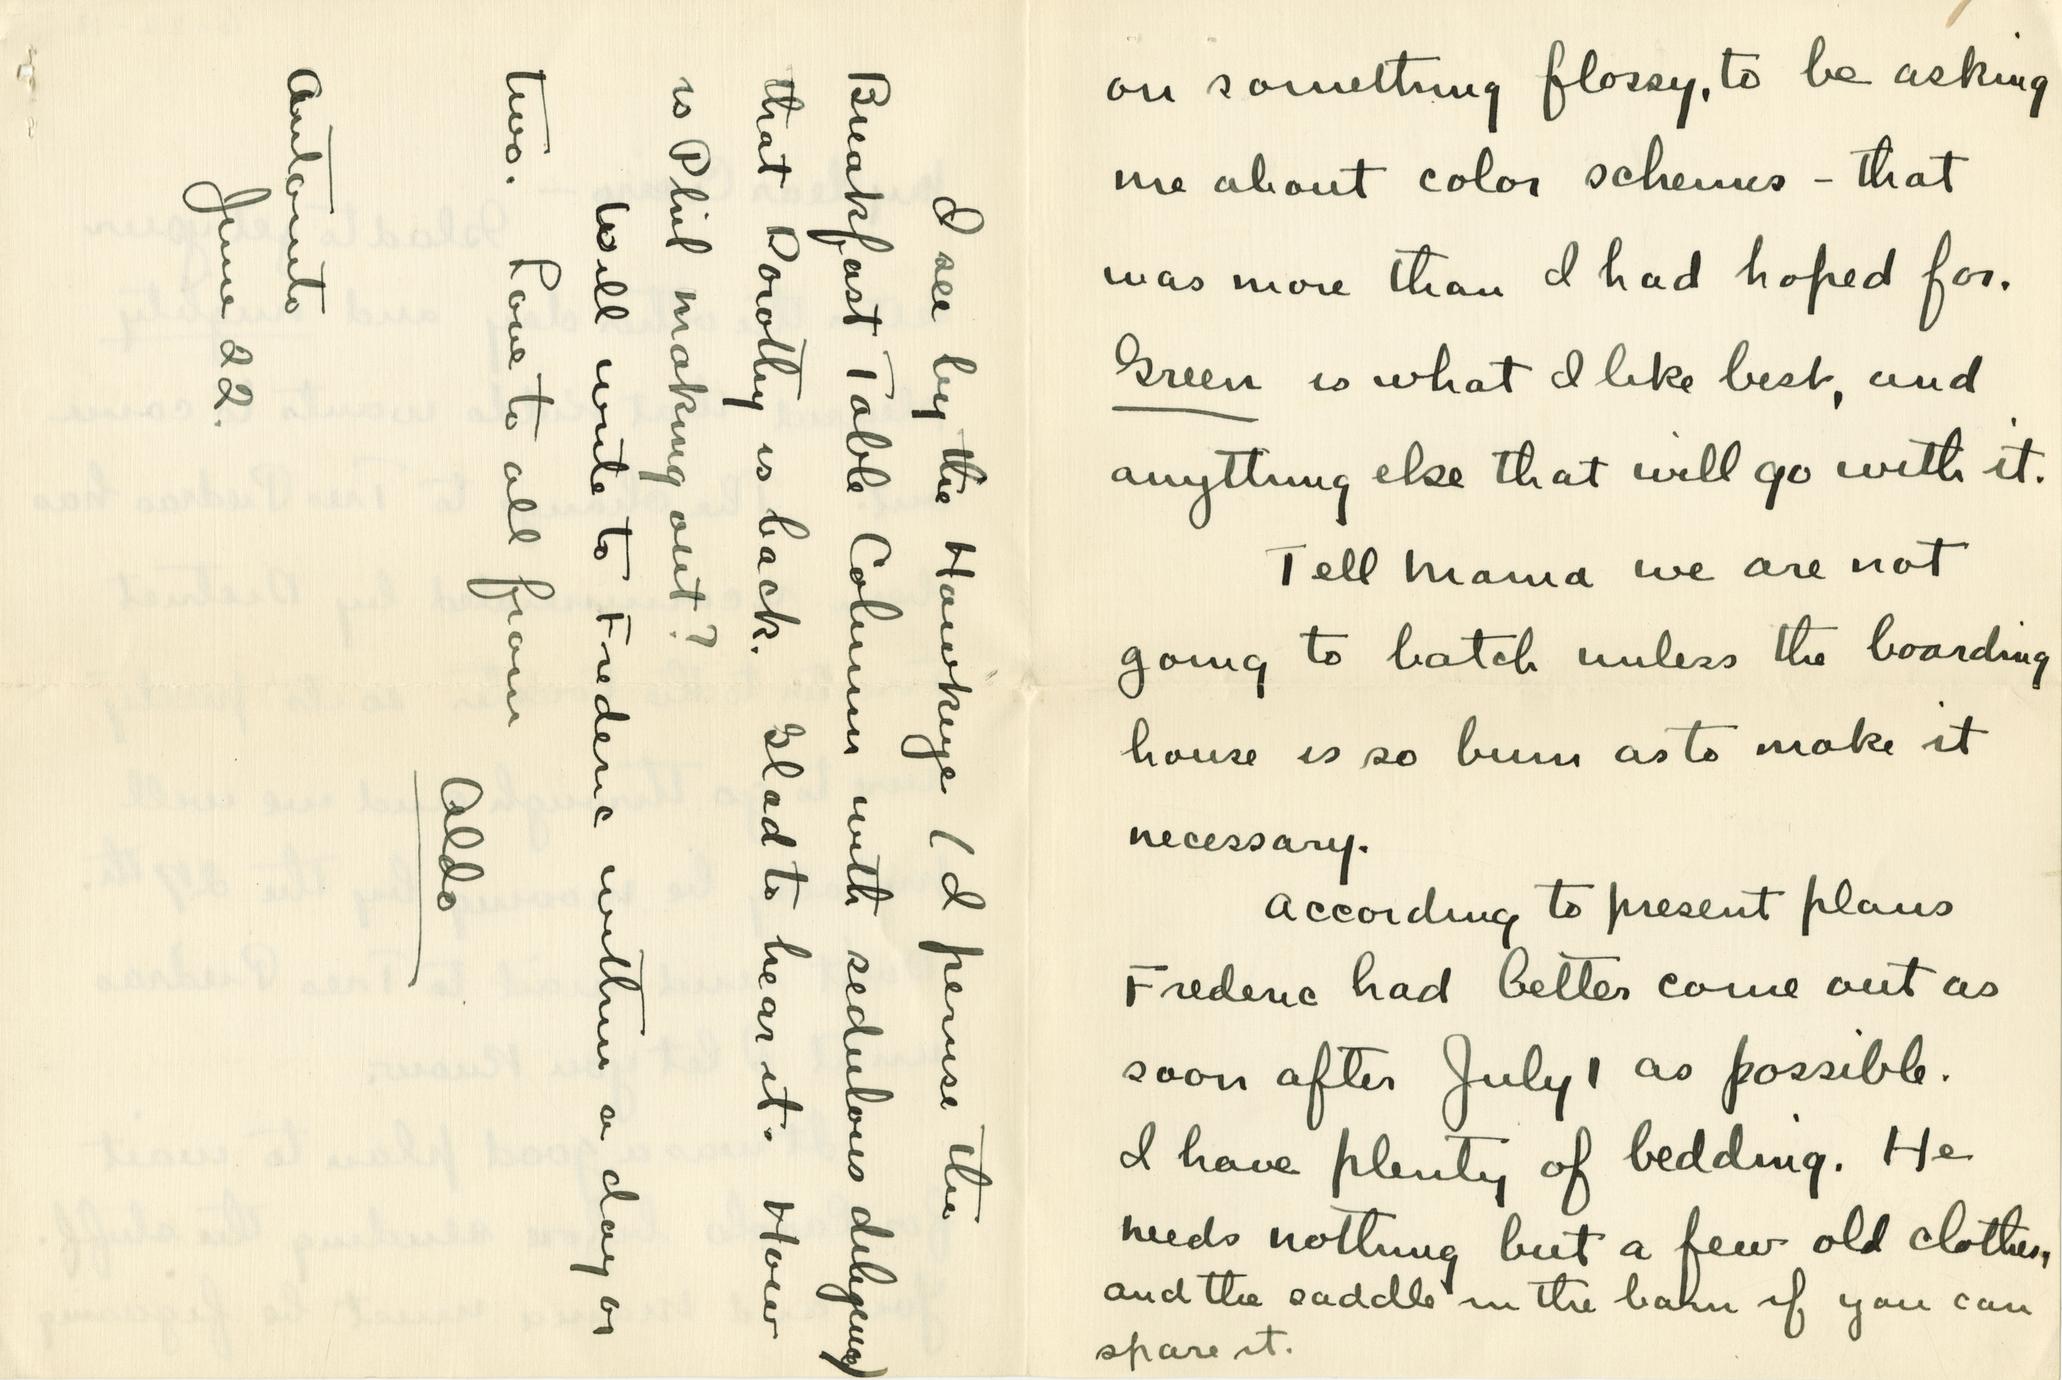 on something flossy, to be asking
me about color schemes - that
was more than I had hoped for.
Green is what I like best, and
anything else that will go with it.
Tell Mama we are not
going to batch unless the boarding
house is so bum as to make it
necessary.
According to present plans
Frederic had better come out as
soon after July 1 as possible.
I have plenty of bedding. He
needs nothing but a few old clothes,
and the saddle in the barn if you can
spare it.
I see by the Hawkeye (I peruse the
Breakfast Table Column with sedulous diligence)
that Dorothy is back. Glad to hear it. How
is Phil making out?
Will write to Frederic within a day or
two. Love to all from
Aldo
Antonito
June 22.